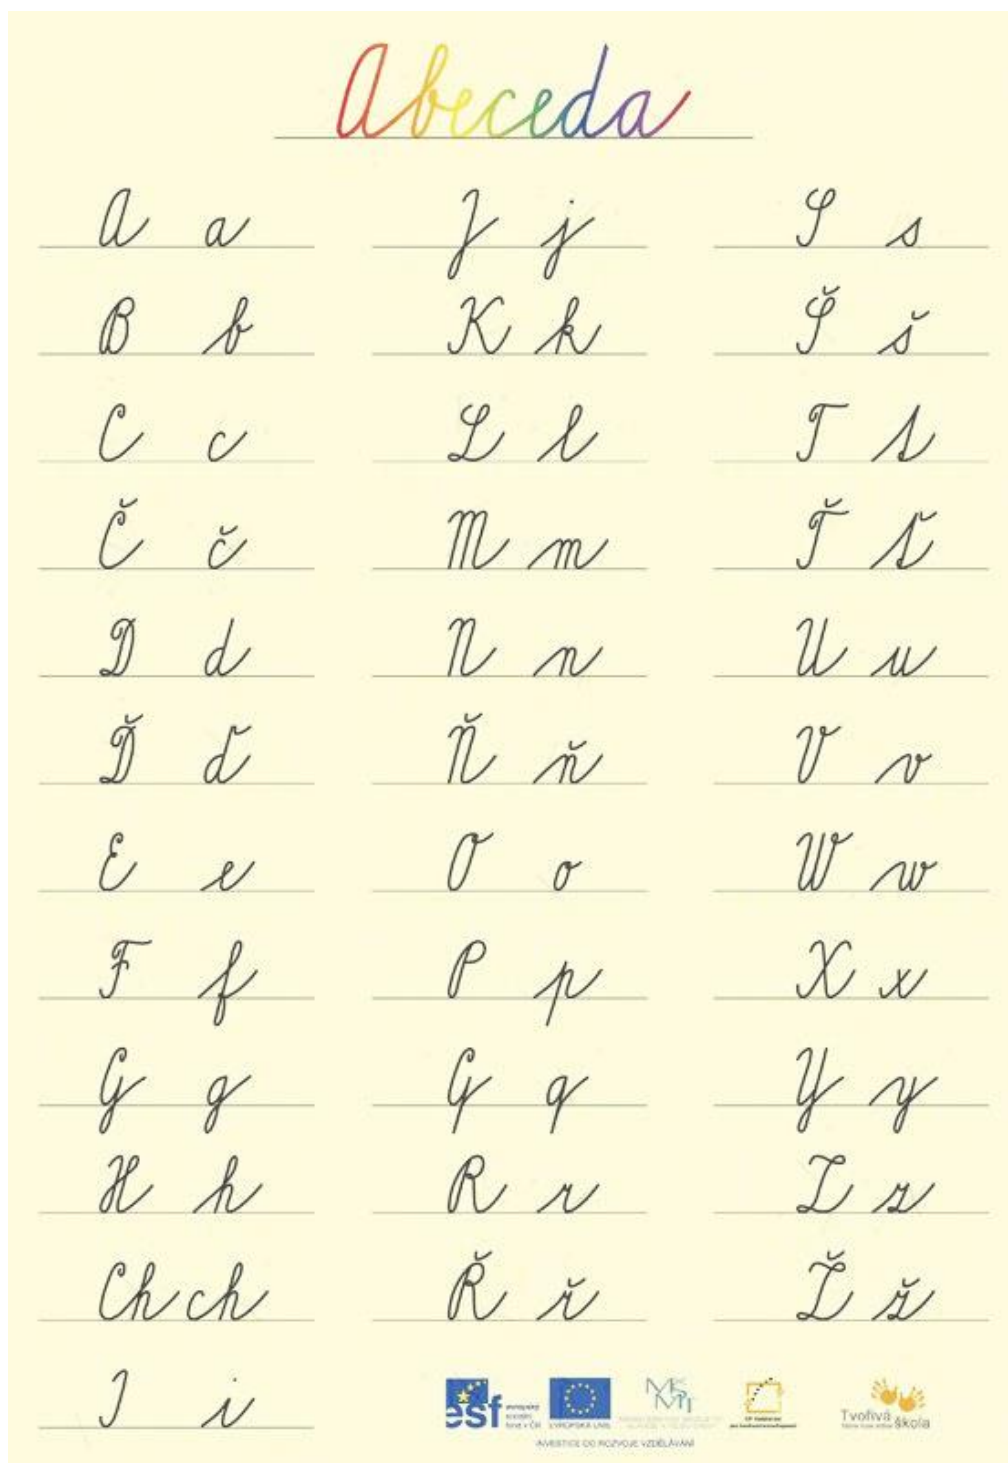 Abeceda
A a
B b
C c
Č č
D d
Ď ď
E e
F f
G g
H h
Ch ch
I i
J j
K k
L l
M m
N n
Ň ň
O o
P p
Q q
R r
Ř ř
S s
Š š
T t
Ť ť
U u
V v
W w
X x
Y y
Z z
Ž ž
esf
evropský
sociální
fond v ČR
EVROPSKÁ UNIE
Tvořivá
škola
INVESTICE DO ROZVOJE VZDĚLÁVÁNÍ